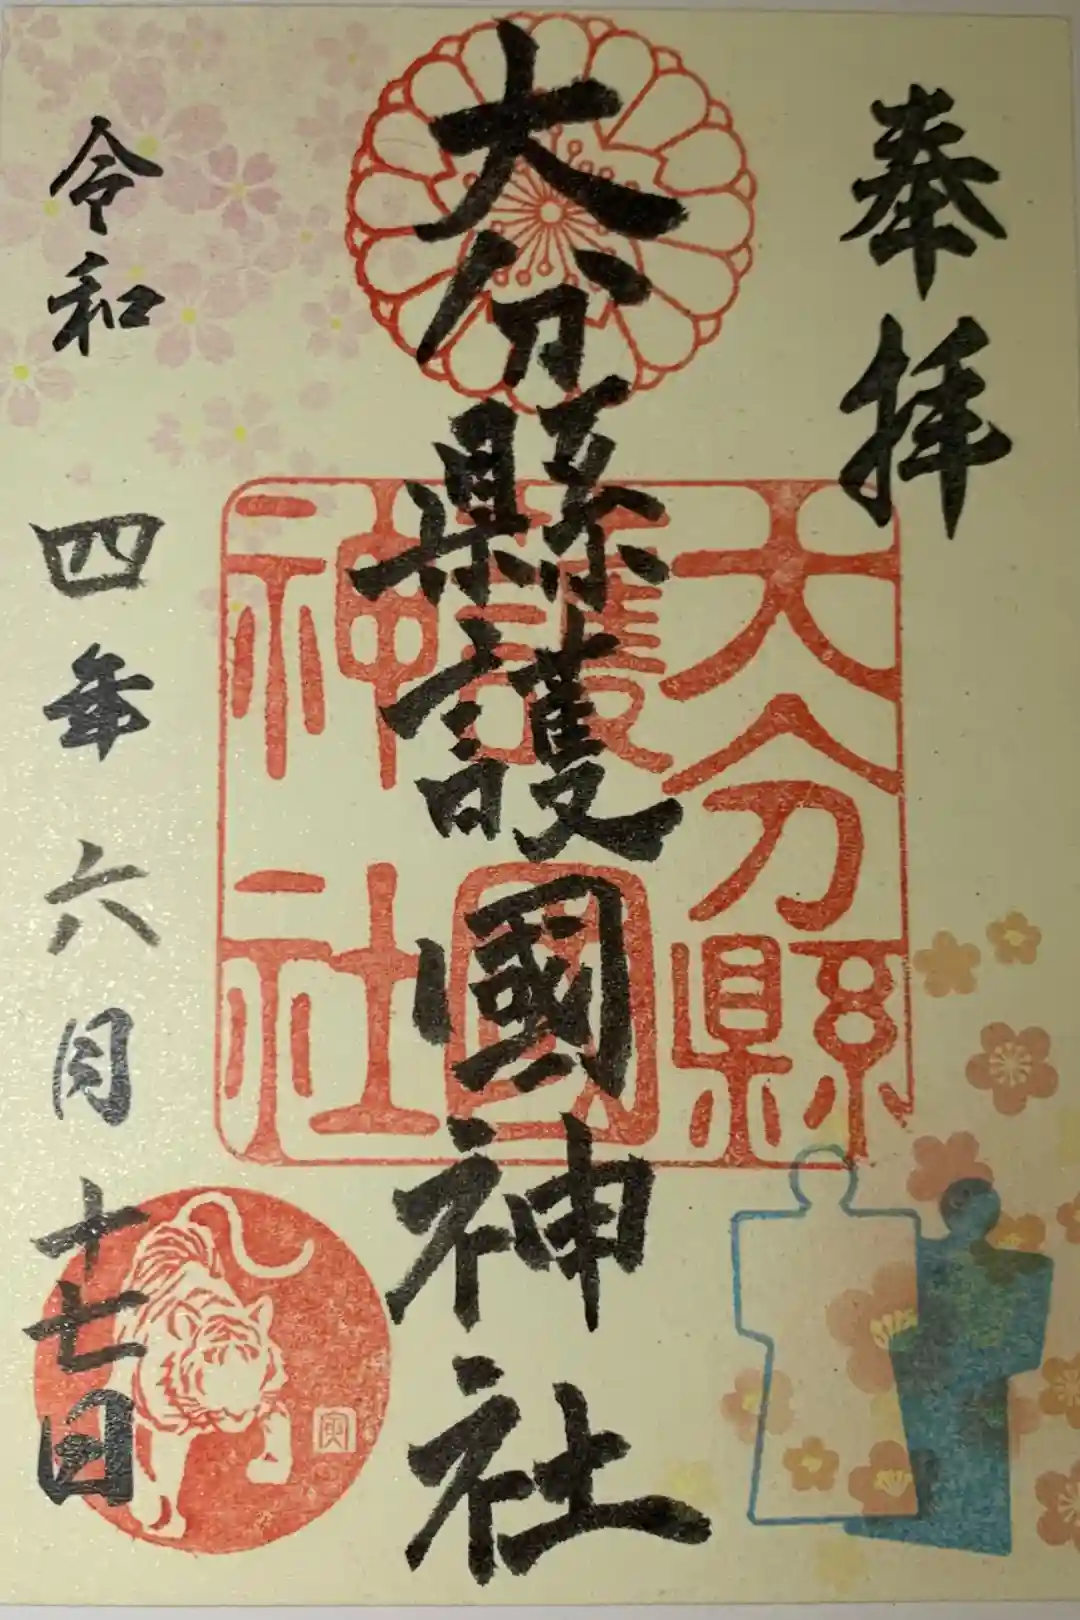 奉拝
大分縣護國神社
大分縣
護國
神社
令和四年六月十七日
寅